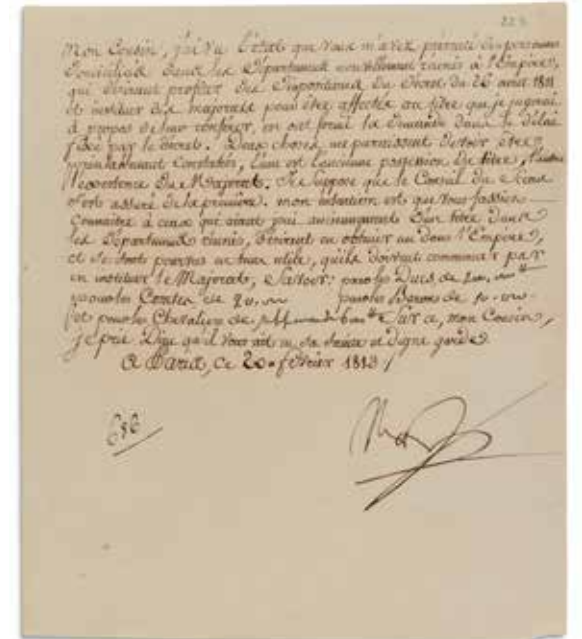 223
Mon Cousin, j'ai vu l'état que vous m'avez présenté des personnes
domiciliées dans les Départements nouvellement réunis à l'Empire,
qui désirant profiter des dispositions du décret du 26 août 1811
et instituer des majorats pour être affectés au titre que je jugerai
à propos de leur conférer, en ont formé la demande dans le délai
fixé par le décret. Deux choses me paraissent devoir être
constatées, l'une est l'ancienne possession du titre, l'autre
l'existence du Majorat. Je suppose que le Conseil du Sceau
s'est assuré de la première. mon intention est que vous fassiez
connaître à ceux qui ayant joui anciennement d'un titre dans
les Départements réunis, désirent en obtenir un dans l'Empire,
et se sont pourvus en tems utile, qu'ils doivent commencer par
en instituer le Majorat, Savoir: pour les Ducs de
pour les Comtes de pour les Barons de
et pour les Chevaliers de Sur ce, mon Cousin,
je prie Dieu qu'il vous ait en sa sainte et digne garde
à Paris, ce 20 février 1813
686